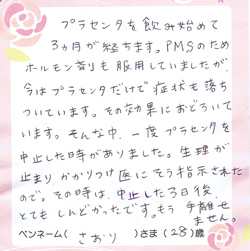 プラセンタを飲み始めて
3ヵ月が経ちます。PMSのため
ホルモン剤も服用していましたが、
今はプラセンタだけで症状も落ち
ついています。その効果におどろいて
います。そんな中、一度プラセンタを
中止した時がありました。生理が
止まり、かかりつけ医にそう指示された
ので。その時は、中止した3日後、
とてもしんどかったです。もう手離せ
ません。
ペンネーム( さおり )さま(28)歳